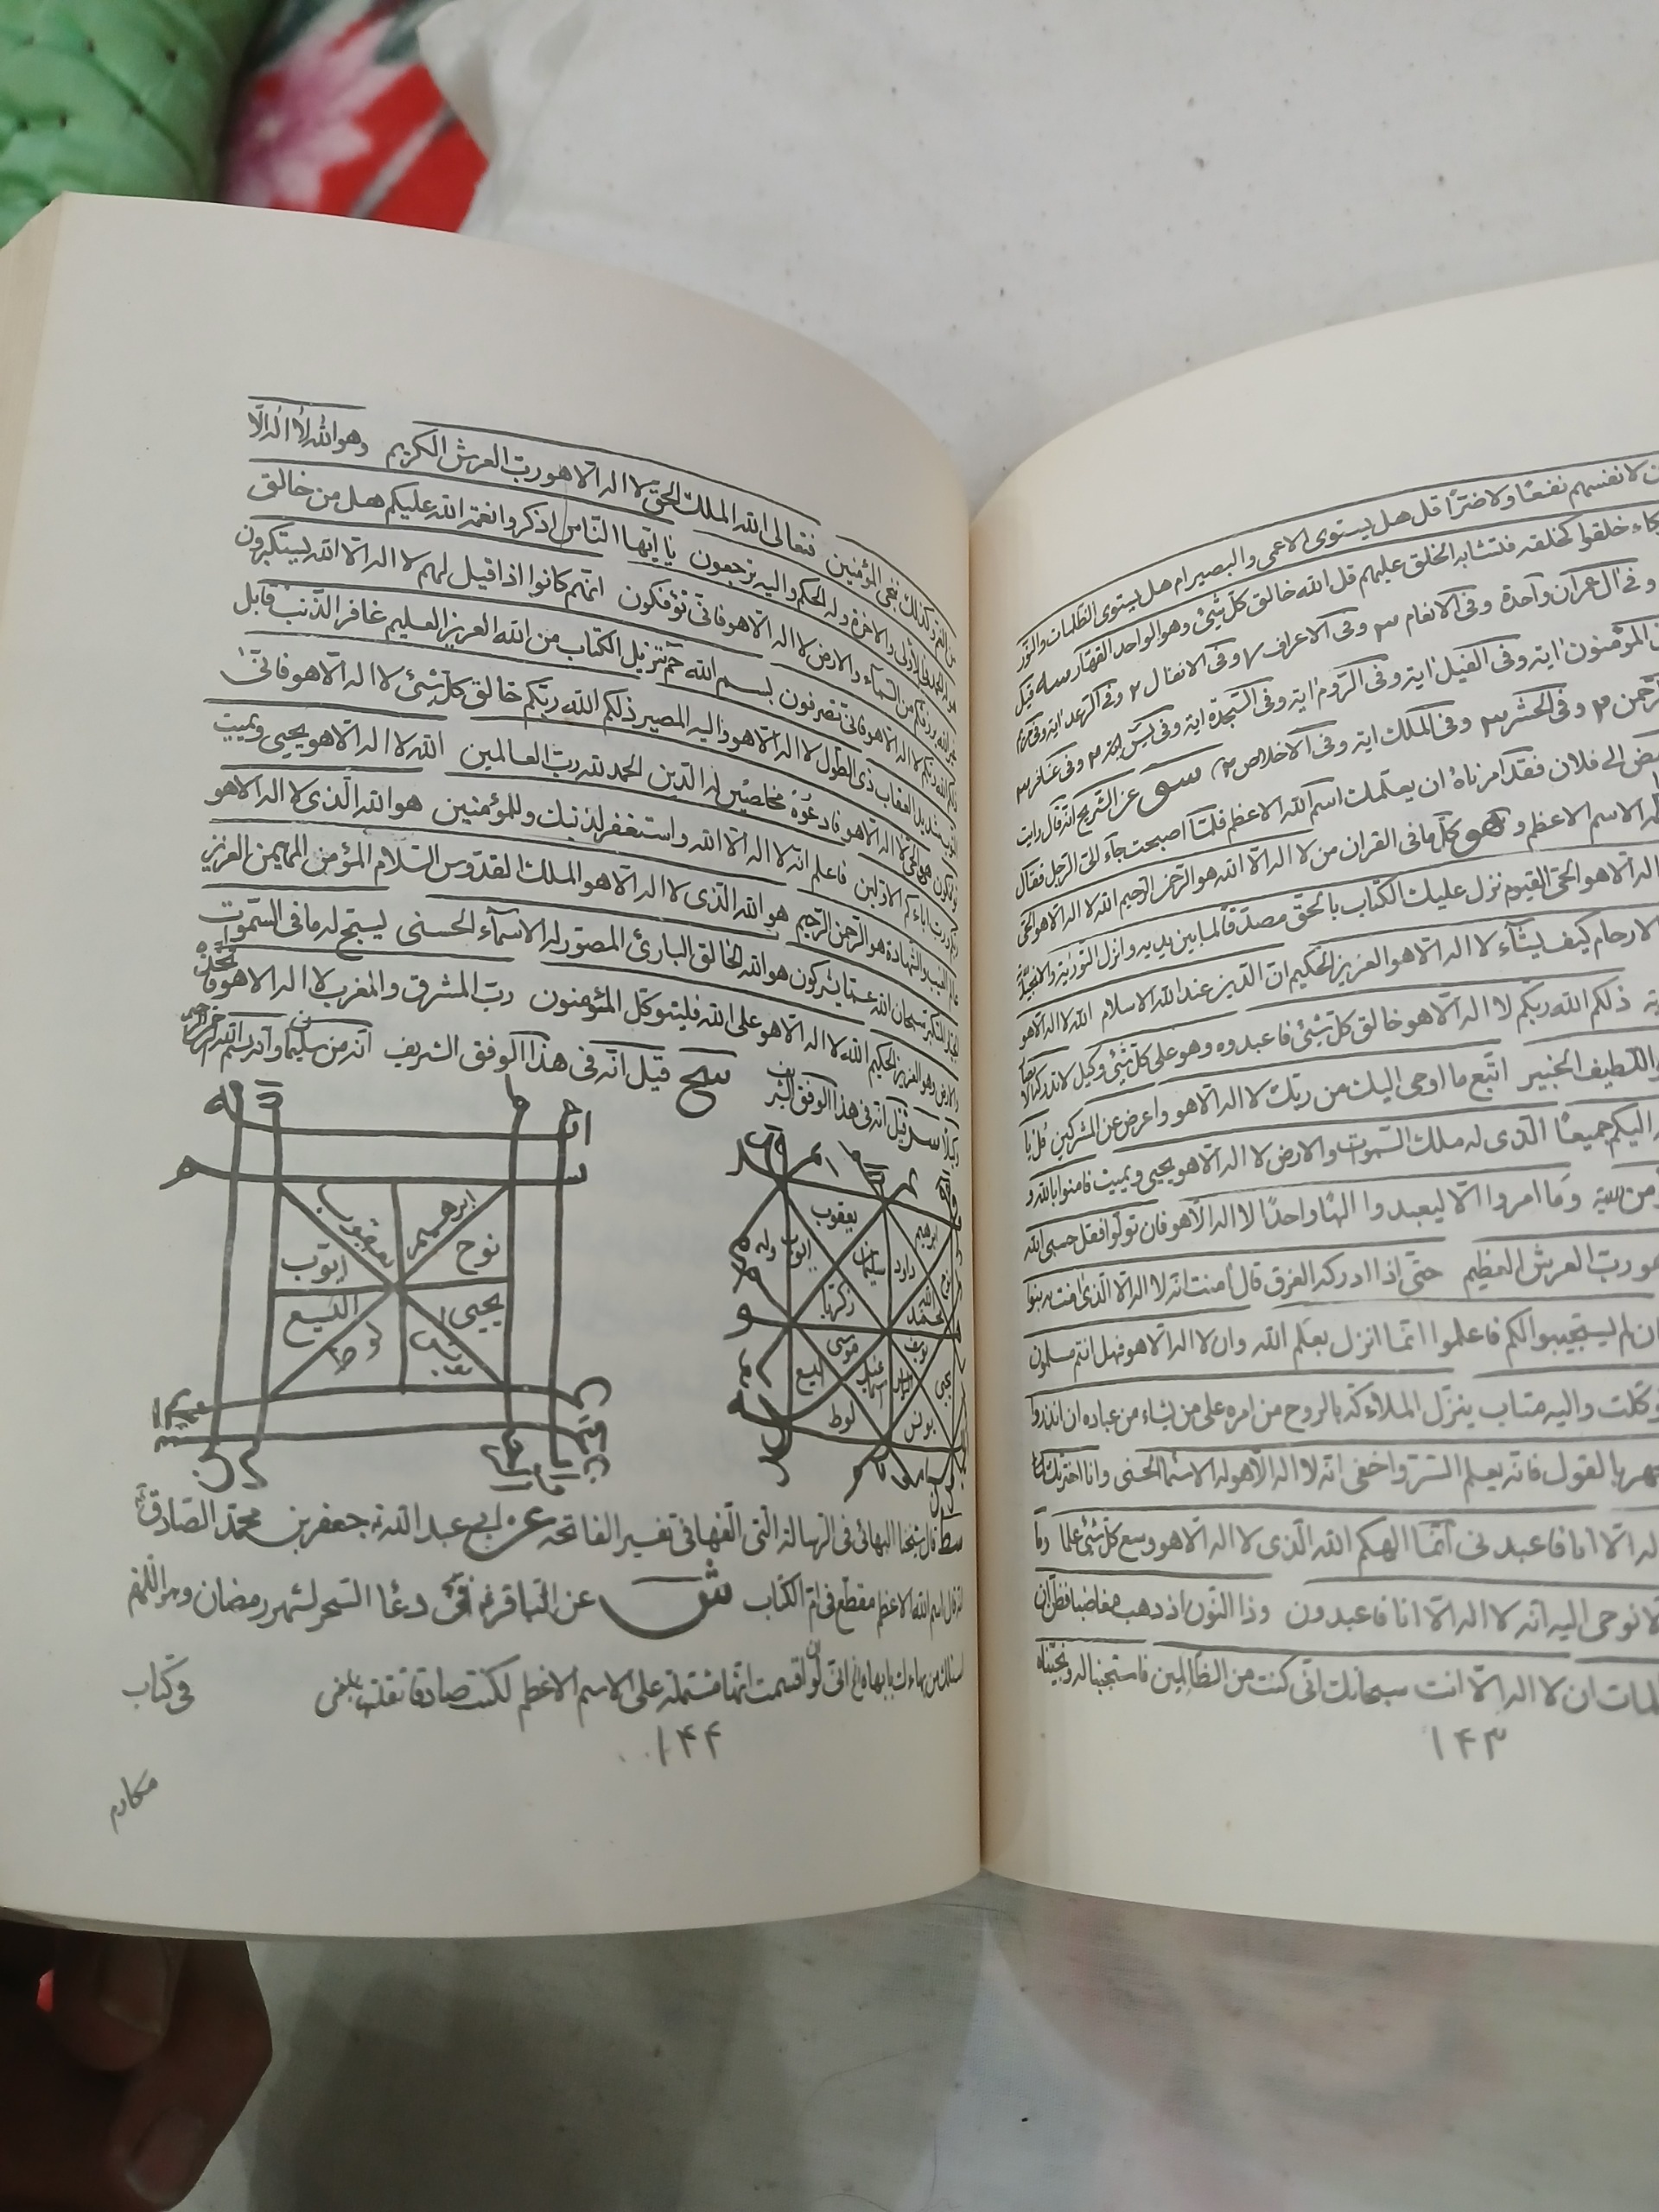 ن لانفسهم نفعًا ولا ضرّا قل هل يستوى الاعمى والبصير ام هل يستوى الظلمات والنور
كاء خلقوا كخلقه فتشابه الخلق عليهم قل الله خالق كل شئ وهو الواحد القهار
وفى ال عمران واحدة وفى الانعام ٣ وفى الاعراف وفى الانفال ٢ وفى الرعد اية وفى
المؤمنون اية وفى الفيل اية وفى الروم اية وفى السجدة اية وفى يس اية وفى غافر ٣
رحمن ٣ وفى الحشر ٣ وفى الملك اية وفى الاخلاص ٢ عن الشريح انه قال رايت
ض الى فلان فقد امرناه ان يعلمك اسم الله الاعظم فلما اصبحت جاء الى الرجل فقال
الاسم الاعظم وهو كل ما فى القران من لا اله الا الله هو الرحمن الرحيم الله لا اله الا هو الحى
اله الا هو الحى القيوم نزل عليك الكتاب بالحق مصدقا لما بين يديه وانزل التورية والانجيل
الارحام كيف يشآء لا اله الا هو العزيز الحكيم ان الدين عند الله الاسلام الله لا اله الا هو
ذلكم الله ربكم لا اله الا هو خالق كل شئ فاعبدوه وهو على كل شئ وكيل لا تدركه الا
اللطيف الخبير اتبع ما اوحى اليك من ربك لا اله الا هو واعرض عن المشركين قل يا
اليكم جميعًا الذى له ملك السموات والارض لا اله الا هو يحيى ويميت فامنوا بالله و
وما امروا الا ليعبدوا الهًا واحدًا لا اله الا هو فان تولوا فقل حسبى الله
هو رب العرش العظيم حتى اذا ادركه الغرق قال امنت انه لا اله الا الذى امنت به بنوا
ان لم يستجيبوا لكم فاعلموا انما انزل بعلم الله وان لا اله الا هو فهل انتم مسلمون
وكلت واليه متاب ينزل الملائكة بالروح من امره على من يشاء من عباده ان انذروا
جهر بالقول فانه يعلم السر واخفى الله لا اله الا هو له الاسماء الحسنى وانا اخترتك
اله الا انا فاعبدنى انما الهكم الله الذى لا اله الا هو وسع كل شئ علما وما
لا نوحى اليه انه لا اله الا انا فاعبدون وذا النون اذ ذهب مغاضبا فظن ان
لمات ان لا اله الا انت سبحانك انى كنت من الظالمين فاستجبنا له ونجيناه
١۴٣
من الغم وكذلك ننجى المؤمنين فتعالى الله الملك الحق لا اله الا هو رب العرش الكريم وهو الله لا اله الا
هو له الحمد فى الاولى والاخرة وله الحكم واليه ترجعون يا ايها الناس اذكروا نعمة الله عليكم هل من خالق
غير الله يرزقكم من السمآء والارض لا اله الا هو فانى تؤفكون انهم كانوا اذا قيل لهم لا اله الا الله يستكبرون
ذلكم الله ربكم لا اله الا هو فانى تصرفون بسم الله حم تنزيل الكتاب من الله العزيز العليم غافر الذنب قابل
التوب شديد العقاب ذى الطول لا اله الا هو واليه المصير ذلكم الله ربكم خالق كل شئ لا اله الا هو فانى
تؤفكون هو الحى لا اله الا هو فادعوه مخلصين له الدين الحمد لله رب العالمين الله لا اله الا هو يحيى ويميت
ربكم ورب اباءكم الاولين فاعلم انه لا اله الا الله واستغفر لذنبك وللمؤمنين هو الله الذى لا اله الا هو
عالم الغيب والشهادة هو الرحمن الرحيم هو الله الذى لا اله الا هو الملك القدوس السلام المؤمن المهيمن العزيز
الجبار المتكبر سبحان الله عما يشركون هو الله الخالق البارئ المصور له الاسمآء الحسنى يسبح له ما فى السموات
والارض وهو العزيز الحكيم الله لا اله الا هو على الله فليتوكل المؤمنون رب المشرق والمغرب لا اله الا هو فاتخذه
وكيلا قيل انه فى هذا الوفق الشريف
قيل انه فى هذا الوفق الشريف انه من سليمان وانه بسم الله الرحمن الرحيم
يعقوب ابرهيم
ايوب نوح
اليسع يحيى
لوط
يعقوب ابرهيم
ايوب سليمان داود
زكريا محمد
موسى يوسف
اليسع يحيى
لوط يونس
قال شيخنا البهائى فى الرسالة التى الفها فى تفسير الفاتحة عن ابى عبد الله جعفر بن محمد الصادق
انه قال اسم الله الاعظم مقطع فى ام الكتاب عن الباقر فى دعا السحر لشهر رمضان وهو اللهم
اسئلك من بهاءك بابهاه انى لو اقسمت انها مشتملة على الاسم الاعظم لكنت صادقا
فى كتاب
١۴۴
مكارم